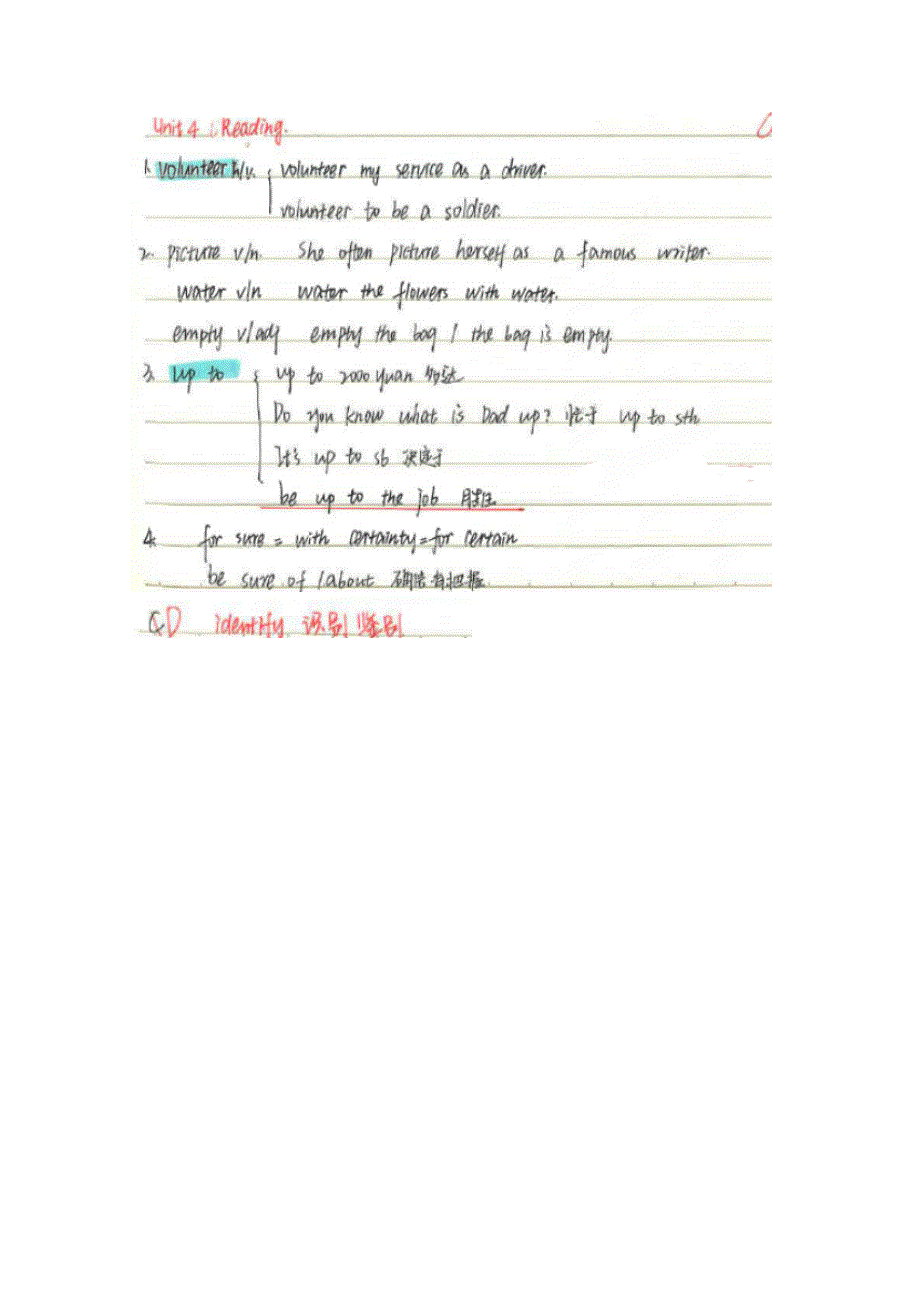 Unit 4 Reading.
1. volunteer n/v. { volunteer my service as a driver.
volunteer to be a soldier.
2. picture v/n. She often picture herself as a famous writer.
water v/n water the flowers with water.
empty v/adj empty the bag / the bag is empty.
3. up to { up to 2000 yuan 多达
Do you know what is Dad up? 忙于 up to sth
It's up to sb 决定于
be up to the job 胜任
4. for sure = with certainty = for certain
be sure of / about 确信 有把握
identify 识别 鉴别